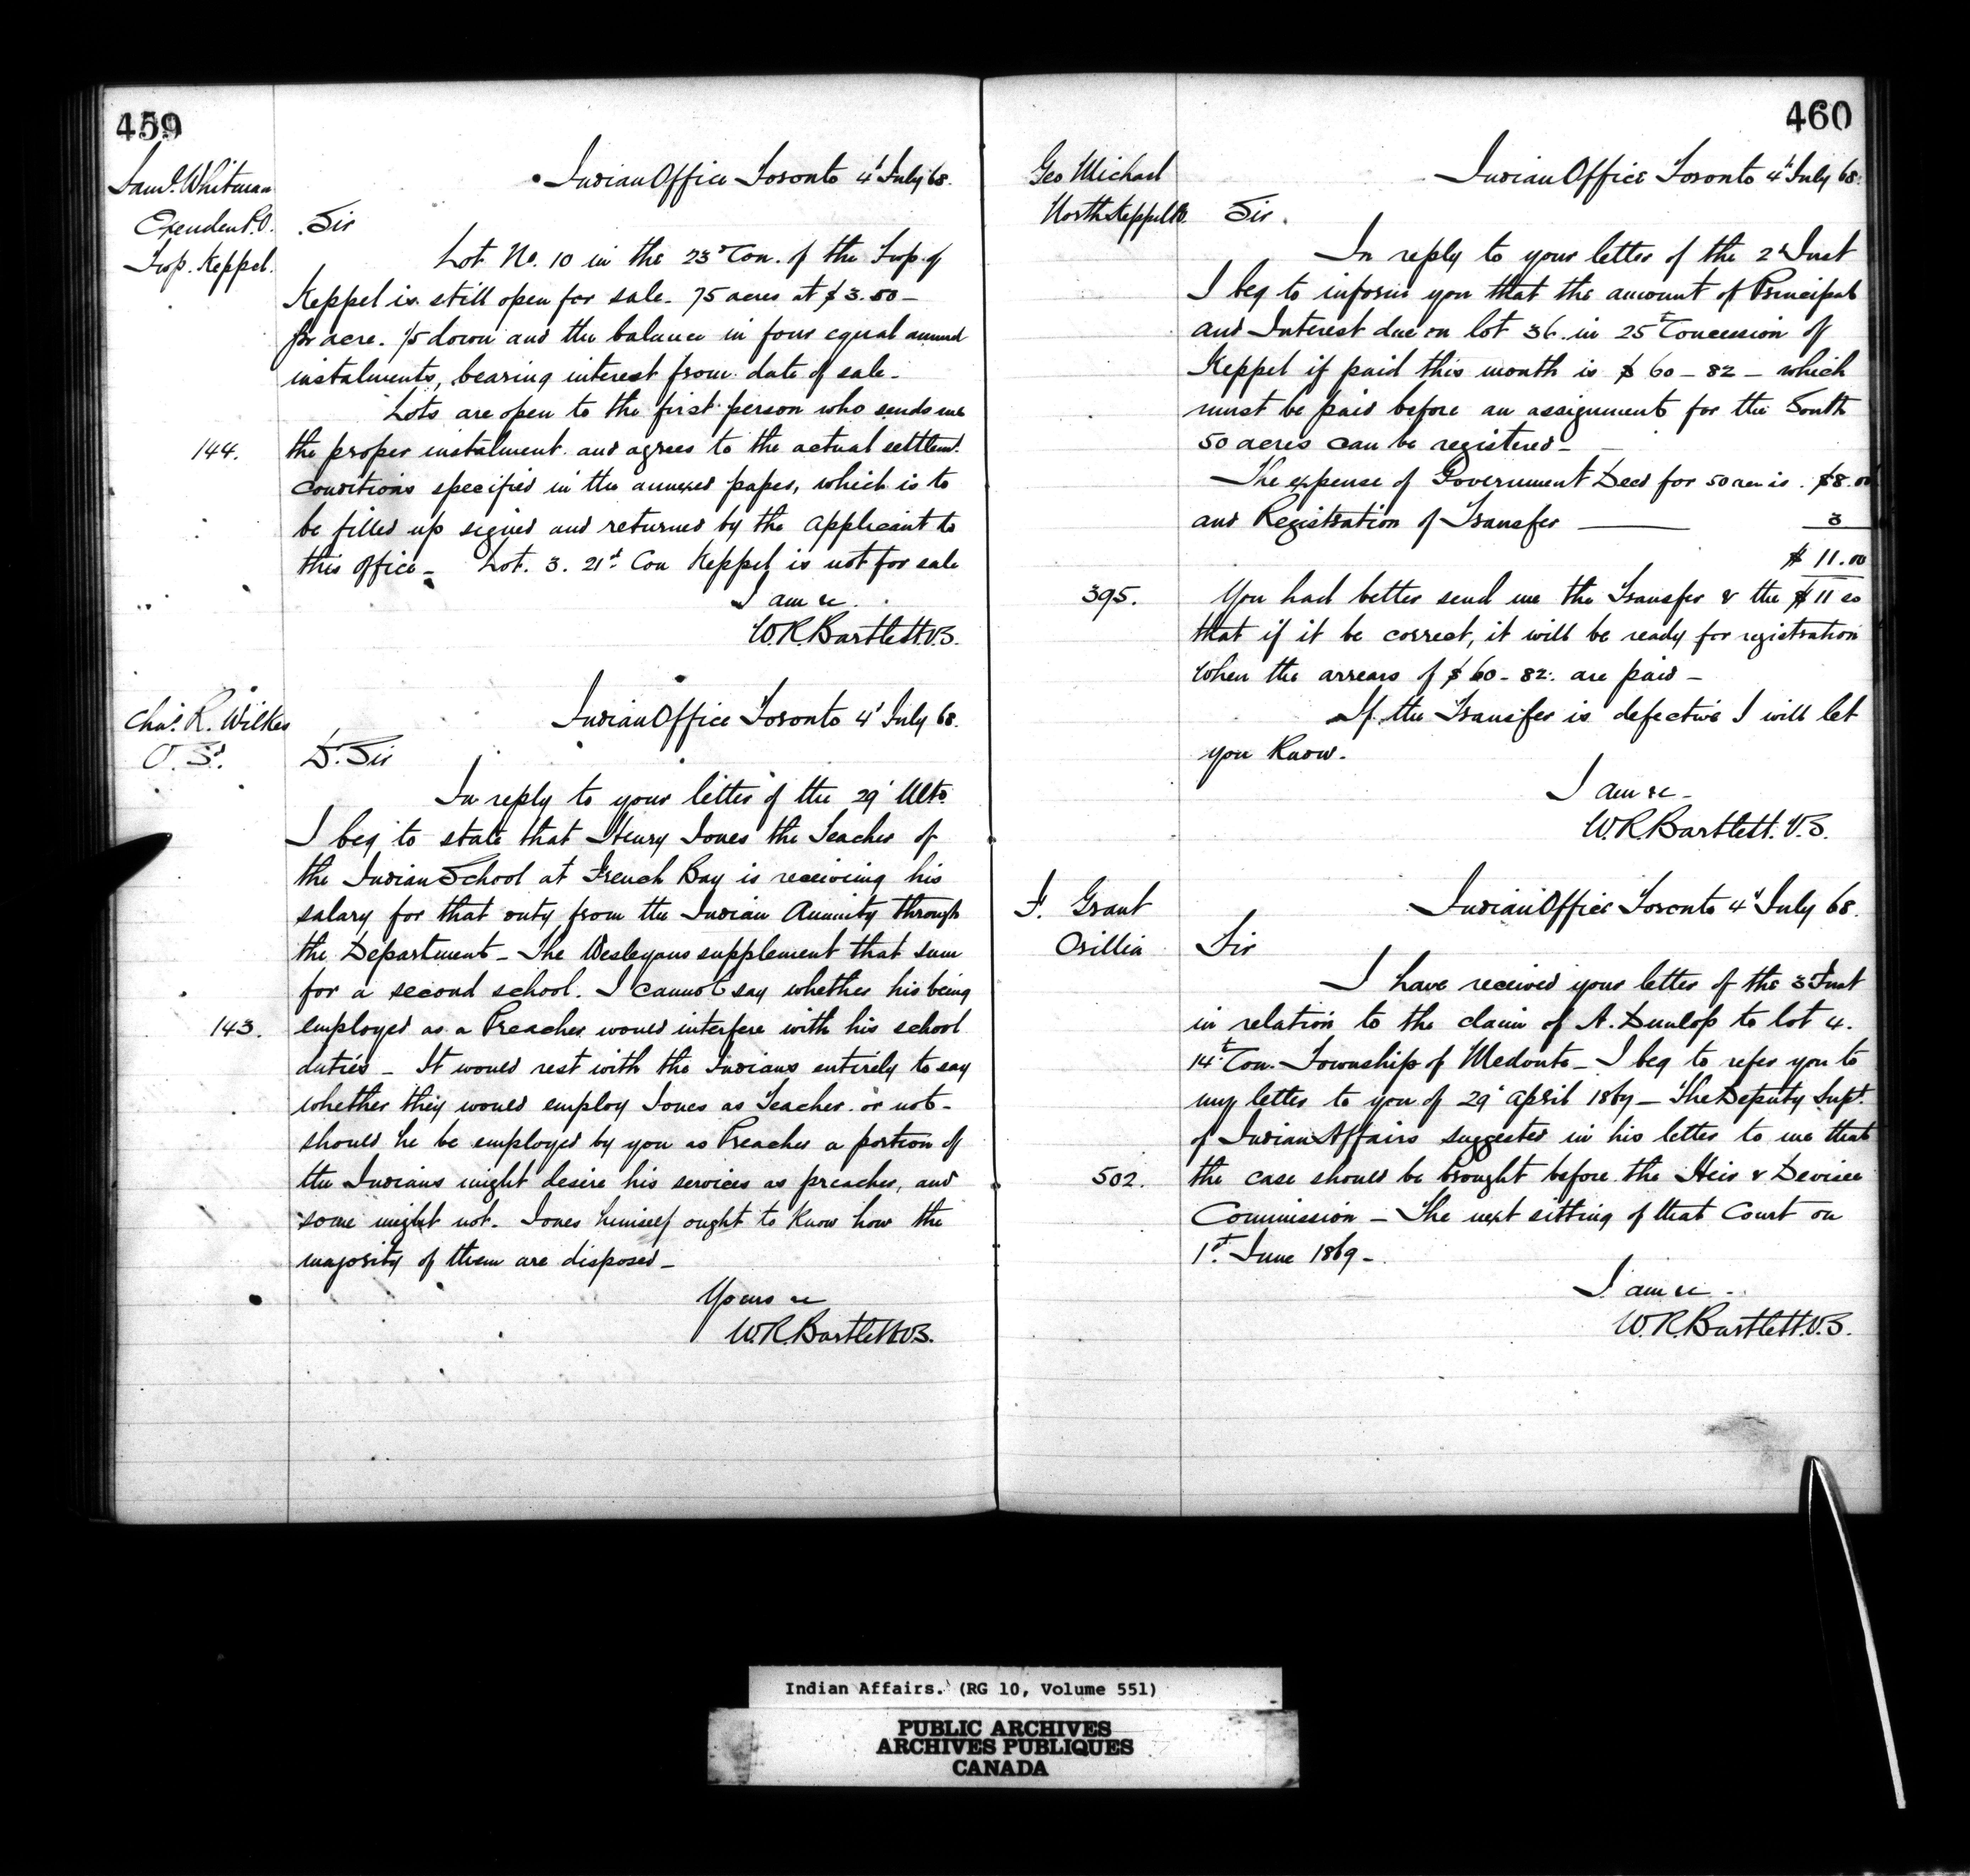 459
Saml. Whitman
Exenden P.O.
Twp. Keppel.
Indian Office Toronto 4t July 68.
Sir
Lot No. 10 in the 23d Con. of the Twp. of
Keppel is still open for sale. 75 acres at $3.50 -
pr acre. 1/5 down and the balance in four equal annual
instalments, bearing interest from date of sale -
Lots are open to the first person who sends me
144. the proper instalment and agrees to the actual settlemt.
conditions specified in the annexed paper, which is to
be filled up signed and returned by the applicant to
this office - Lot. 3. 21st Con Keppel is not for sale
I am &c.
W.R. Bartlett V.S.
Chas. R. Wilkes
O. Sd.
Indian Office Toronto 4t July 68.
D. Sir
In reply to your letter of the 29t Ulto.
I beg to state that Henry Jones the Teacher of
the Indian School at French Bay is receiving his
salary for that duty from the Indian Annuity through
the Department - The Wesleyans supplement that sum
for a second school. I cannot say whether his being
143. employed as a Preacher would interfere with his school
duties - It would rest with the Indians entirely to say
whether they would employ Jones as Teacher or not -
should he be employed by you as Preacher a portion of
the Indians might desire his services as preacher, and
some might not - Jones himself ought to know how the
majority of them are disposed -
Yours &c
W.R. Bartlett V.S.
460
Geo Michael
North Keppel P.O.
Indian Office Toronto 4t July 68.
Sir.
In reply to your letter of the 2d Inst
I beg to inform you that the amount of Principal
and Interest due on lot 36 in 25t Concession of
Keppel if paid this month is $60-82 - which
must be paid before an assignment for the South
50 acres can be registered -
The expense of Government Deed for 50 acres is . $8.00
and Registration of Transfer 3
$11.00
395. You had better send me the Transfer & the $11 so
that if it be correct, it will be ready for registration
when the arrears of $60-82. are paid -
If the Transfer is defective I will let
you know.
I am &c -
W.R. Bartlett. V.S.
F. Grant
Orillia
Indian Office Toronto 4t July 68.
Sir
I have received your letter of the 3 Inst
in relation to the claim of A. Dunlop to lot 4.
14t Con. Township of Medonte - I beg to refer you to
my letter to you of 29t April 1867 - The Deputy Supt.
of Indian Affairs suggested in his letter to me that
502. the case should be brought before the Heir & Devisee
Commission - The next sitting of that Court on
1st June 1869 -
I am &c -
W.R. Bartlett. V.S.
Indian Affairs. (RG 10, Volume 551)
PUBLIC ARCHIVES
ARCHIVES PUBLIQUES
CANADA